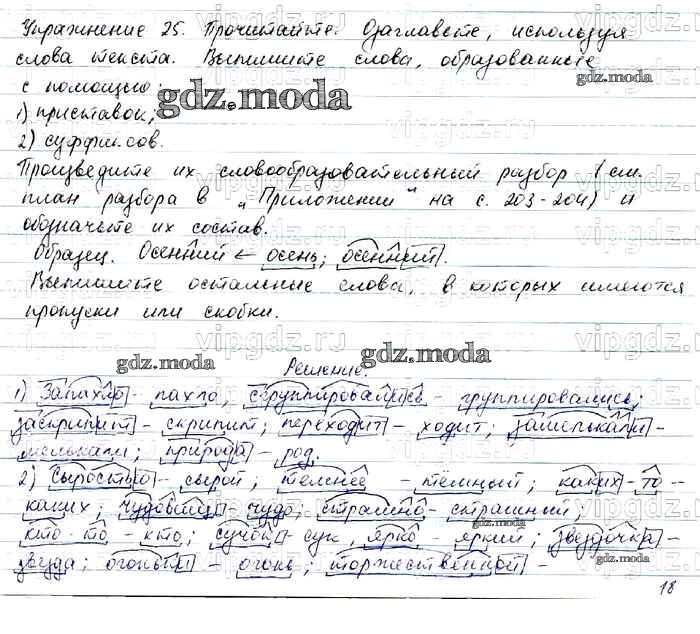 Упражнение 25. Прочитайте. Озаглавьте, используя
слова текста. Выпишите слова, образованные
с помощью
1) приставок;
2) суффиксов.
Произведите их словообразовательный разбор (см.
план разбора в "Приложении" на с. 203-204) и
обозначьте их состав.
Образец. Осенний ← осень; осенний.
Выпишите остальные слова, в которых имеются
пропуски или скобки.
Решение.
1) Запахло - пахло, сгруппировались - группировались;
заскрипит - скрипит; переходит - ходит; замелькали -
мелькали; природа - род.
2) Сыростью - сырой; темнее - темный; каких-то -
каких; чудовищ - чудо; страшно - страшний;
кто то - кто; сучок - сук, ярко - яркий; звездочка -
звезда; огоньки - огонь; торжественной -
18
gdz.moda
gdz.moda
gdz.moda
gdz.moda
gdz.moda
vipgdz.ru